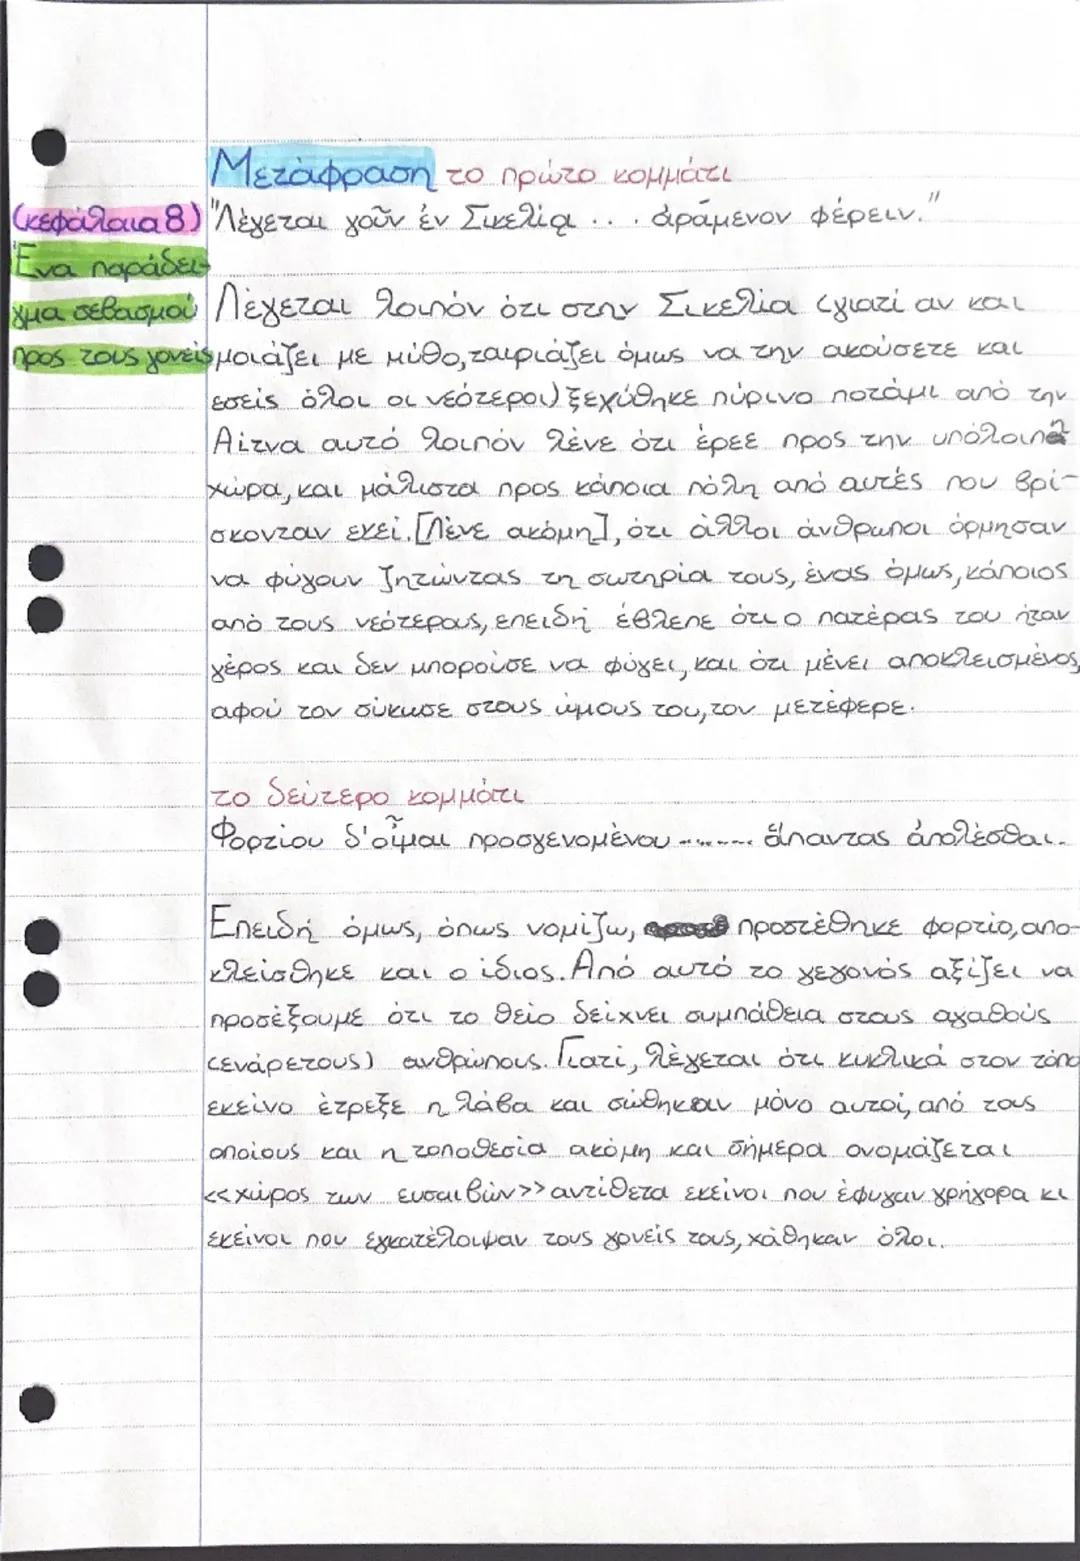 Μετάφραση το πρώτο κομμάτι
(κεφάλαια 8) "Λέγεται γοῦν ἐν Σικελίᾳ ... ἀράμενον φέρειν."
Ένα παράδει-
γμα σεβασμού Λέγεται λοιπόν ότι στην Σικελία (γιατί αν και
προς τους γονείς μοιάζει με μύθο, ταιριάζει όμως να την ακούσετε και
εσείς όλοι οι νεότεροι) ξεχύθηκε πύρινο ποτάμι από την
Αίτνα αυτό λοιπόν λένε ότι έρεε προς την υπόλοιπη
χώρα, και μάλιστα προς κάποια πόλη από αυτές που βρί-
σκονταν εκεί. [Λένε ακόμη], ότι άλλοι άνθρωποι όρμησαν
να φύγουν ζητώντας τη σωτηρία τους, ένας όμως, κάποιος
από τους νεότερους, επειδή έβλεπε ότι ο πατέρας του ήταν
γέρος και δεν μπορούσε να φύγει, και ότι μένει αποκλεισμένος,
αφού τον σύκωσε στους ώμους του, τον μετέφερε.
το δεύτερο κομμάτι
Φορτίου δ'οἶμαι προσγενομένου ......... ἅπαντας ἀπολέσθαι.
Επειδή όμως, όπως νομίζω, προστέθηκε φορτίο, απο-
κλείσθηκε και ο ίδιος. Από αυτό το γεγονός αξίζει να
προσέξουμε ότι το θείο δείχνει συμπάθεια στους αγαθούς
(ενάρετους) ανθρώπους. Γιατί, λέγεται ότι κυκλικά στον τόπο
εκείνο έτρεξε η λάβα και σώθηκαν μόνο αυτοί, από τους
οποίους και η τοποθεσία ακόμη και σήμερα ονομάζεται
<<χώρος των ευσαιβών>> αντίθετα εκείνοι που έφυγαν γρήγορα κι
εκείνοι που εγκατέλοιψαν τους γονείς τους, χάθηκαν όλοι.